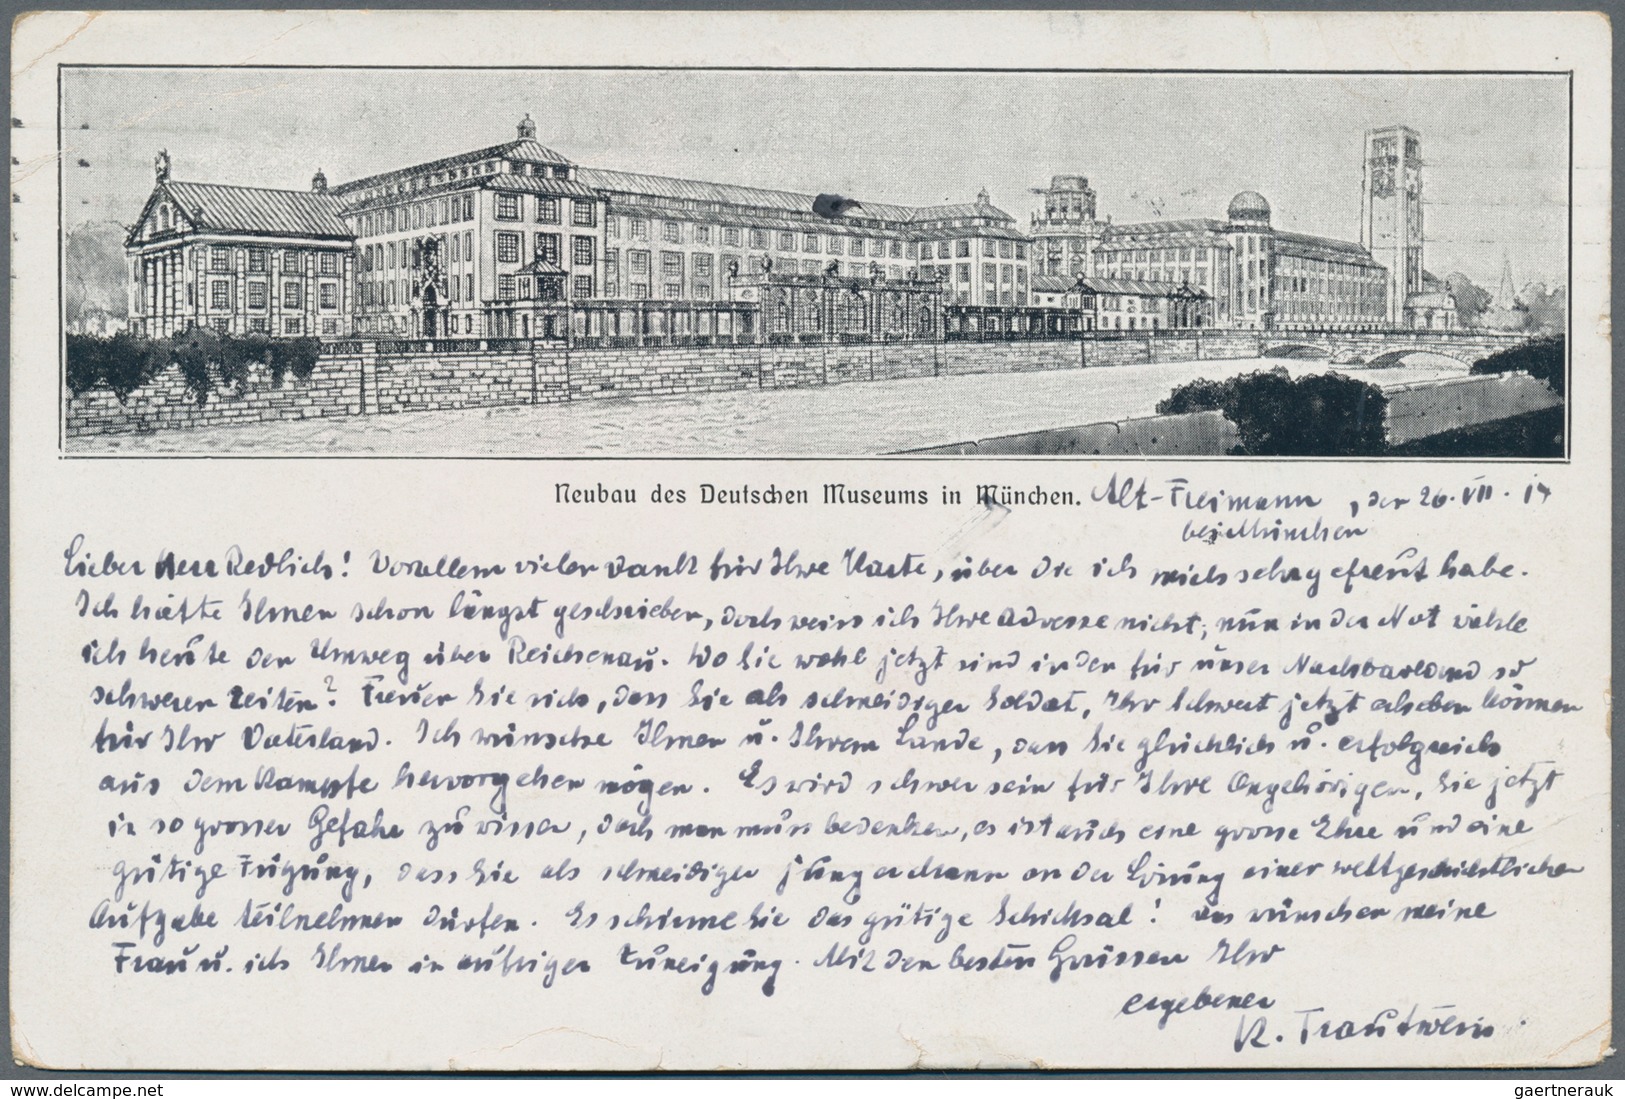 Neubau des Deutschen Museums in München. Alt-Freimann, den 26. VII. 14
bei München
Lieber Herr Redlich! Vorallem vielen Dank für Ihre Karte, über die ich mich sehr gefreut habe.
Ich hätte Ihnen schon längst geschrieben, doch weiss ich Ihre Adresse nicht, nun in der Not wähle
ich heute den Umweg über Reichenau. Wo Sie wohl jetzt sind in den für unser Nachbarland so
schweren Zeiten? Freuen Sie sich, dass Sie als schneidiger Soldat, Ihr Schwert jetzt erheben können
für Ihr Vaterland. Ich wünsche Ihnen u. Ihrem Lande, dass Sie glücklich u. erfolgreich
aus dem Kampfe hervorgehen mögen. Es wird schwer sein für Ihre Angehörigen, Sie jetzt
in so grosser Gefahr zu wissen, doch man muss bedenken, es ist auch eine grosse Ehre und eine
gütige Fügung, dass Sie als schneidiger junger Mann an der Lösung einer weltgeschichtlichen
Aufgabe teilnehmen dürfen. Es schirme Sie das gütige Schicksal! das wünschen meine
Frau u. ich Ihnen in aufriger Zuneigung. Mit den besten Grüssen Ihr
ergebener
K. Trautwein
www.delcampe.net
gaertnerauk